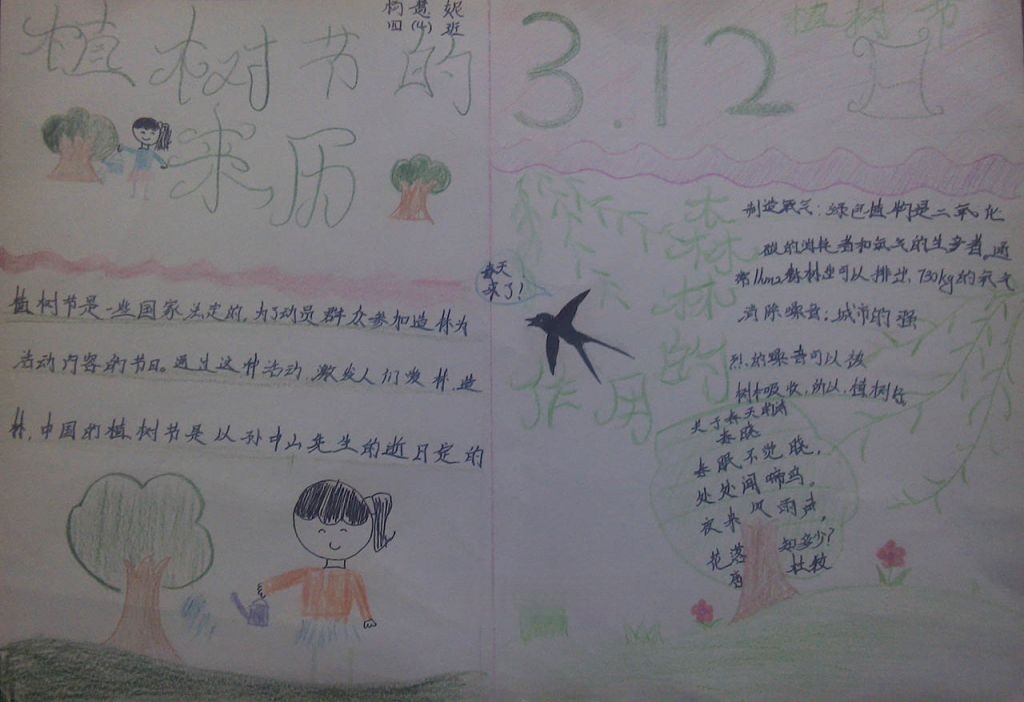 植树节的
来历
杨慧妮
四(4)班
植树节是一些国家法定的,为了动员群众参加造林为
活动内容的节日。通过这种活动,激发人们爱林、造
林,中国的植树节是以孙中山先生的逝日定的
3.12日
植树节
森林的
作用
春天
来了!
制造氧气:绿色植物是二氧化
碳的消耗者和氧气的生产者。通
常1hm2森林出可以排出,730kg的氧气
消除噪音:城市的强
烈的噪音可以被
树木吸收,所以,植树后
关于春天的诗
春晓
春眠不觉晓,
处处闻啼鸟。
夜来风雨声,
花落知多少?
唐 杜牧